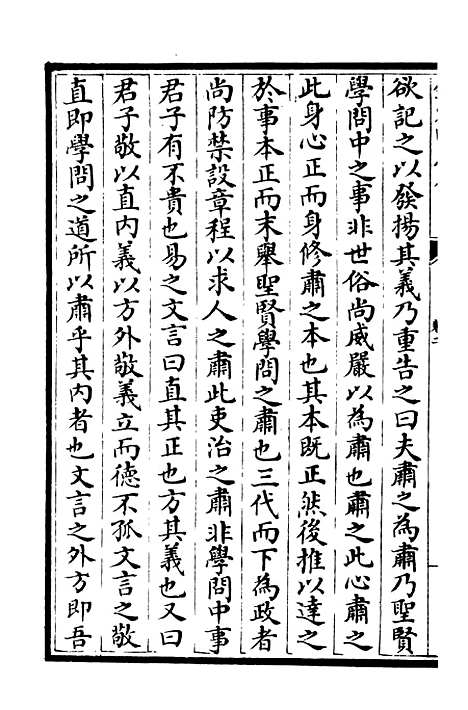 欲記之以發揚其義乃重告之曰夫肅之為肅乃聖賢
學問中之事非世俗尚威嚴以為肅也肅之此心肅之
此身心正而身修肅之本也其本既正然後推以達之
於事本正而末舉聖賢學問之肅也三代而下為政者
尚防禁設章程以求人之肅此吏治之肅非學問中事
君子有不貴也易之文言曰直其正也方其義也又曰
君子敬以直内義以方外敬義立而德不孤文言之敬
直即學問之道所以肅乎其内者也文言之外方即吾